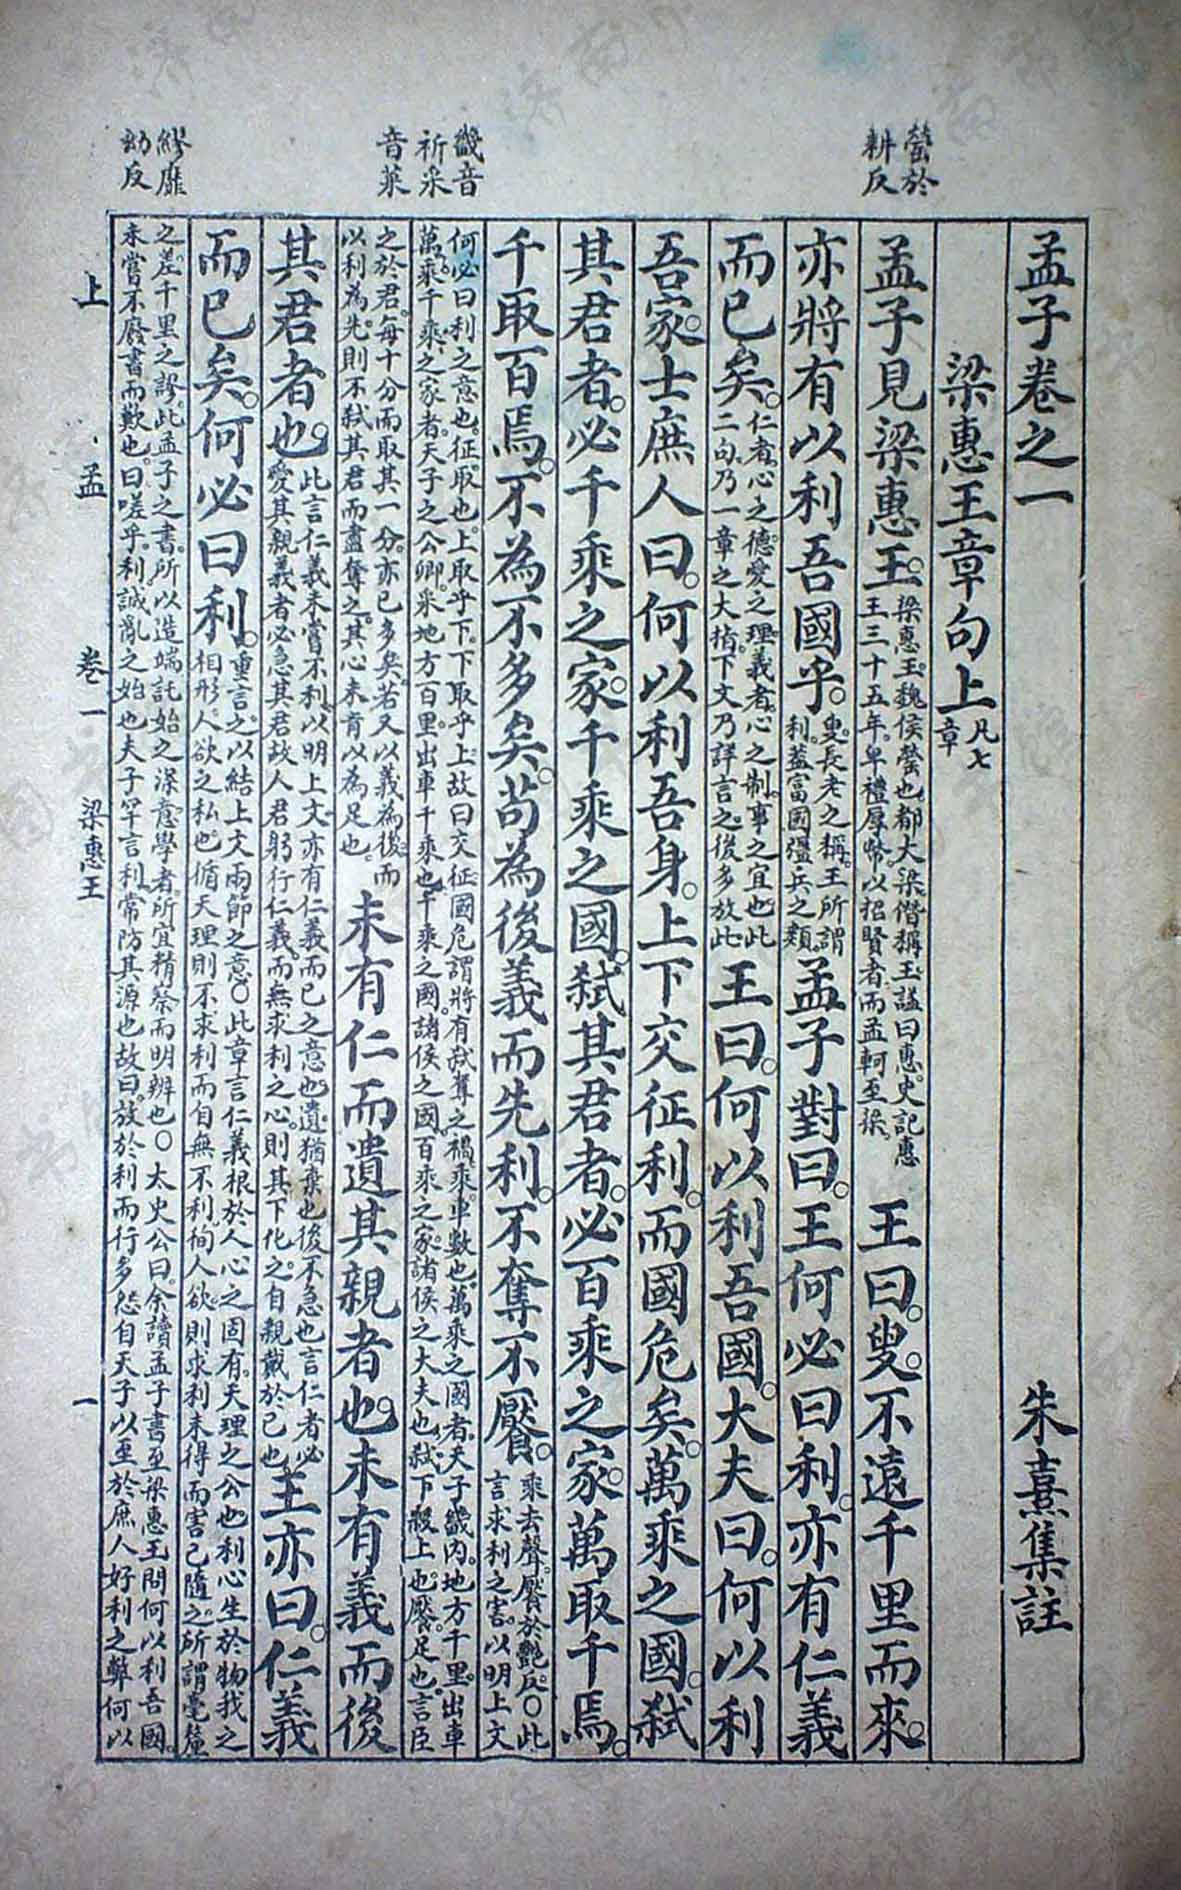 螢於
耕反
畿音
祈采
音菜
繆靡
幼反
孟子卷之一 朱熹集註
梁惠王章句上 凡七章
孟子見梁惠王。梁惠王。魏侯罃也。都大梁。僭稱王。諡曰惠。史記惠王三十五年。卑禮厚幣。以招賢者。而孟軻至梁。王曰。叟。不遠千里而來。
亦將有以利吾國乎。叟。長老之稱。王所謂利。蓋富國彊兵之類。孟子對曰。王何必曰利。亦有仁義
而已矣。仁者。心之德。愛之理。義者。心之制。事之宜也。此二句。乃一章之大指。下文乃詳言之。後多放此王曰。何以利吾國。大夫曰。何以利
吾家。士庶人曰。何以利吾身。上下交征利。而國危矣。萬乘之國。弒
其君者。必千乘之家。千乘之國。弒其君者。必百乘之家。萬取千焉。
千取百焉。不為不多矣。苟為後義而先利。不奪不饜。乘去聲。饜於艷反。○此言求利之害。以明上文
何必曰利之意也。征。取也。上取乎下。下取乎上。故曰交征。國危。謂將有弒奪之禍。乘。車數也。萬乘之國者。天子畿內。地方千里。出車
萬乘。千乘之家者。天子之公卿。采地方百里。出車千乘也。千乘之國。諸侯之國。百乘之家。諸侯之大夫也。弒。下殺上也。饜。足也。言臣
之於君。每十分而取其一分。亦已多矣。若又以義為後。而
以利為先。則不弒其君而盡奪之。其心未肯以為足也。未有仁而遺其親者也。未有義而後
其君者也。此言仁義未嘗不利。以明上文亦有仁義而已之意也。遺。猶棄也。後。不急也。言仁者必愛其親。義者必急其君。故人君躬行仁義。而無求利之心。則其下化之。自親戴於己也王亦曰。仁義
而已矣。何必曰利。重言之。以結上文兩節之意。○此章言仁義根於人心之固有。天理之公也。利心生於物我之相形。人欲之私也。循天理則不求利而自無不利。徇人欲。則求利未得而害己隨之。所謂毫釐
之差。千里之謬。此孟子之書。所以造端託始之深意。學者所宜精察而明辨也。○太史公曰。余讀孟子書至梁惠王問何以利吾國。
未嘗不廢書而歎也。曰嗟乎。利誠亂之始也。夫子罕言利。常防其源也。故曰放於利而行多怨。自天子以至於庶人。好利之弊何以
上 孟 卷一 梁惠王 一